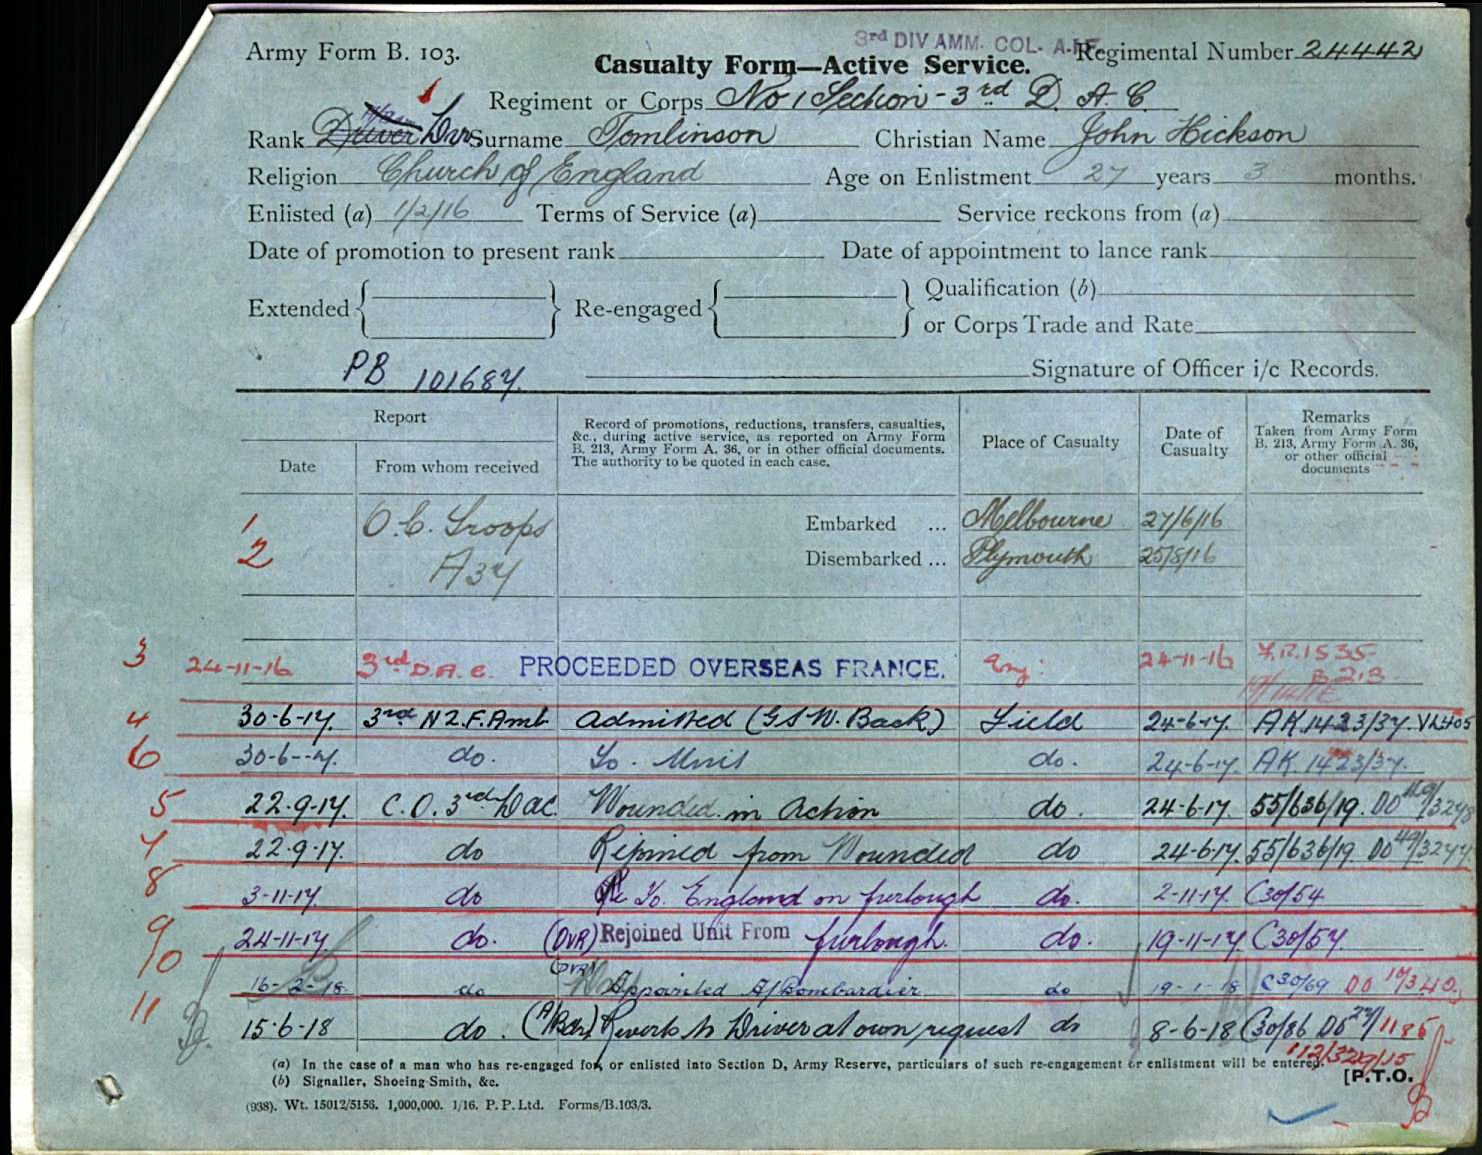 3rd DIV AMM. COL. A.I.F.
Army Form B. 103.
Casualty Form—Active Service.
Regimental Number 24442
Regiment or Corps No 1 Section - 3rd D. A. C.
Rank Driver Dvr Surname Tomlinson Christian Name John Hickson
Religion Church of England Age on Enlistment 27 years 3 months.
Enlisted (a) 1/2/16 Terms of Service (a) Service reckons from (a)
Date of promotion to present rank Date of appointment to lance rank
Extended Re-engaged Qualification (b)
or Corps Trade and Rate
PB 101687. Signature of Officer i/c Records.
Report
Date From whom received
Record of promotions, reductions, transfers, casualties,
&c., during active service, as reported on Army Form
B. 213, Army Form A. 36, or in other official documents.
The authority to be quoted in each case.
Place of Casualty
Date of
Casualty
Remarks
Taken from Army Form
B. 213, Army Form A. 36,
or other official
documents
1 O.C. Troops Embarked ... Melbourne 27/6/16
2 A37 Disembarked ... Plymouth 25/8/16
3 24-11-16 3rd D.A.C. PROCEEDED OVERSEAS FRANCE. Eng: 24-11-16 1535 B 213
4 30-6-17. 3rd NZ.F.Amb Admitted (G.S.W. Back) Field 24-6-17. AK.1423/37.
6 30-6-17. do. To Unit do. 24-6-17. AK.1423/37.
5 22.9.17. C.O. 3rd Dac Wounded in Action do. 24-6-17 55/636/19. DO
7 22.9.17. do Rejoined from Wounded do 24-6-17 55/636/19 DO
8 3-11-17. do To England on furlough do. 2-11-17. C30/54
9 24-11-17 do. (DVR) Rejoined Unit From furlough. do. 19-11-17 C30/57
10 16-2-18 do (DVR) Appointed A/Bombardier do 19-1-18 C30/69 DO
11 15-6-18 do. (A/Bdr) Reverts to Driver at own request do 8-6-18 C30/86 DO
(a) In the case of a man who has re-engaged for, or enlisted into Section D, Army Reserve, particulars of such re-engagement or enlistment will be entered.
(b) Signaller, Shoeing-Smith, &c.
[P.T.O.
(938). Wt. 15012/5156. 1,000,000. 1/16. P.P.Ltd. Forms/B.103/3.